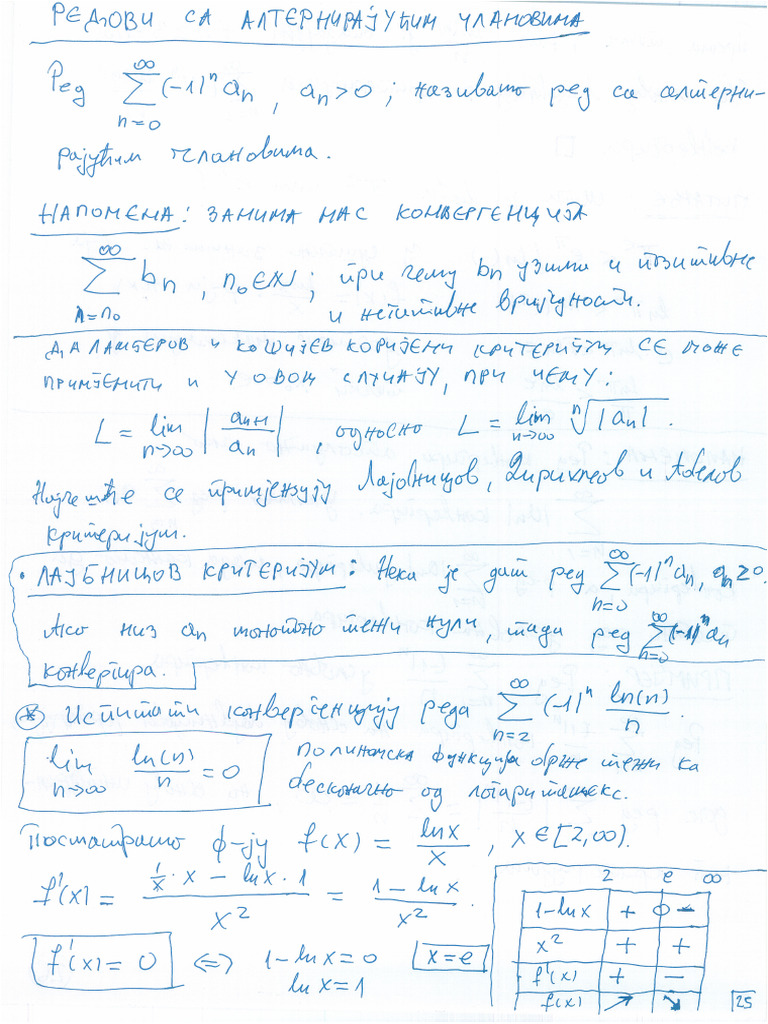 РЕДОВИ СА АЛТЕРНИРАЈУЋИМ ЧЛАНОВИМА
Ред ∑_{n=0}^{∞} (-1)^n a_n , a_n > 0 ; називамо ред са алтерни-
рајућим члановима.
НАПОМЕНА: ЗАНИМА НАС КОНВЕРГЕНЦИЈА
∑_{n=n_0}^{∞} b_n , n_0 ∈ N ; при чему b_n узима и позитивне
и негативне вриједности.
ДАЛАМБЕРОВ И КОШИЈЕВ КОРИЈЕНИ КРИТЕРИЈУМ СЕ МОЖЕ
ПРИМЈЕНИТИ И У ОВОМ СЛУЧАЈУ, ПРИ ЧЕМУ:
L = lim_{n→∞} | a_{n+1} / a_n | , односно L = lim_{n→∞} ⁿ√|a_n| .
Најчешће се примјењују Лајбницов, Дирихлеов и Абелов
критеријум.
• ЛАЈБНИЦОВ КРИТЕРИЈУМ: Нека је дат ред ∑_{n=0}^{∞} (-1)^n a_n, a_n ≥ 0.
Ако низ a_n монотоно тежи нули тада ред ∑_{n=0}^{∞} (-1)^n a_n
конвергира.
⊛ Испитати конвергенцију реда ∑_{n=2}^{∞} (-1)^n ln(n)/n .
lim_{n→∞} ln(n)/n = 0 полиномска функција брже тежи ка
бесконачно од логаритамске.
Посматрамо ф-ју f(x) = lnx/x , x ∈ [2,∞).
f'(x) = (1/x · x − lnx · 1)/x² = (1 − lnx)/x² .
f'(x) = 0 ⇔ 1 − lnx = 0 x = e
lnx = 1
2 e ∞
1-lnx + 0 −
x² + +
f'(x) + −
f(x) ↗ ↘
25